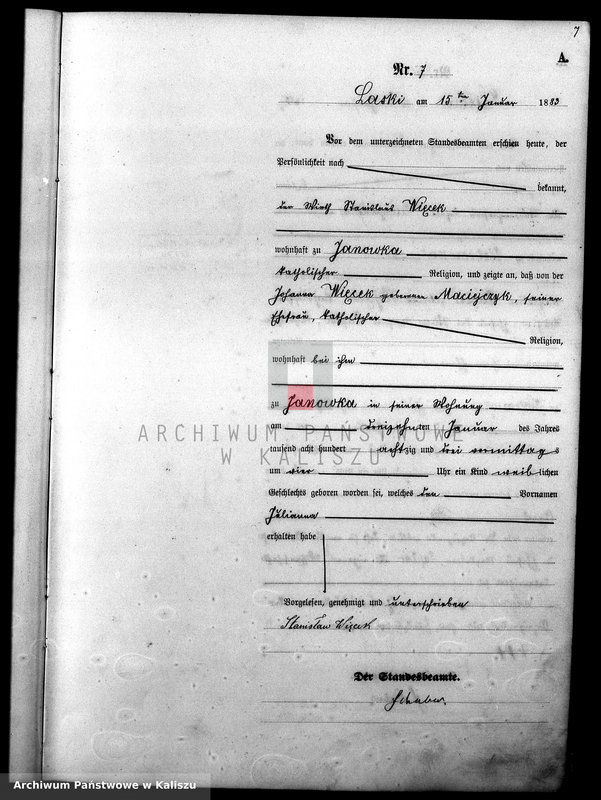 7
A.
Nr. 7
Laski am 15ten Januar 1883
Vor dem unterzeichneten Standesbeamten erschien heute, der
Persönlichkeit nach
bekannt,
der Wirth Stanislaus Więcek
wohnhaft zu Janowka
katholischer Religion, und zeigte an, daß von der
Johanna Więcek geborenen Maciejczyk, seiner
Ehefrau, katholischer
Religion,
wohnhaft bei ihm
zu Janowka in seiner Wohnung
am dreizehnten Januar des Jahres
tausend acht hundert achtzig und drei vormittags
um vier Uhr ein Kind weiblichen
Geschlechts geboren worden sei, welches den Vornamen
Julianna
erhalten habe
Vorgelesen, genehmigt und unterschrieben
Stanisław Więcek
Der Standesbeamte.
ARCHIWUM PAŃSTWOWE
W KALISZU
Archiwum Państwowe w Kaliszu